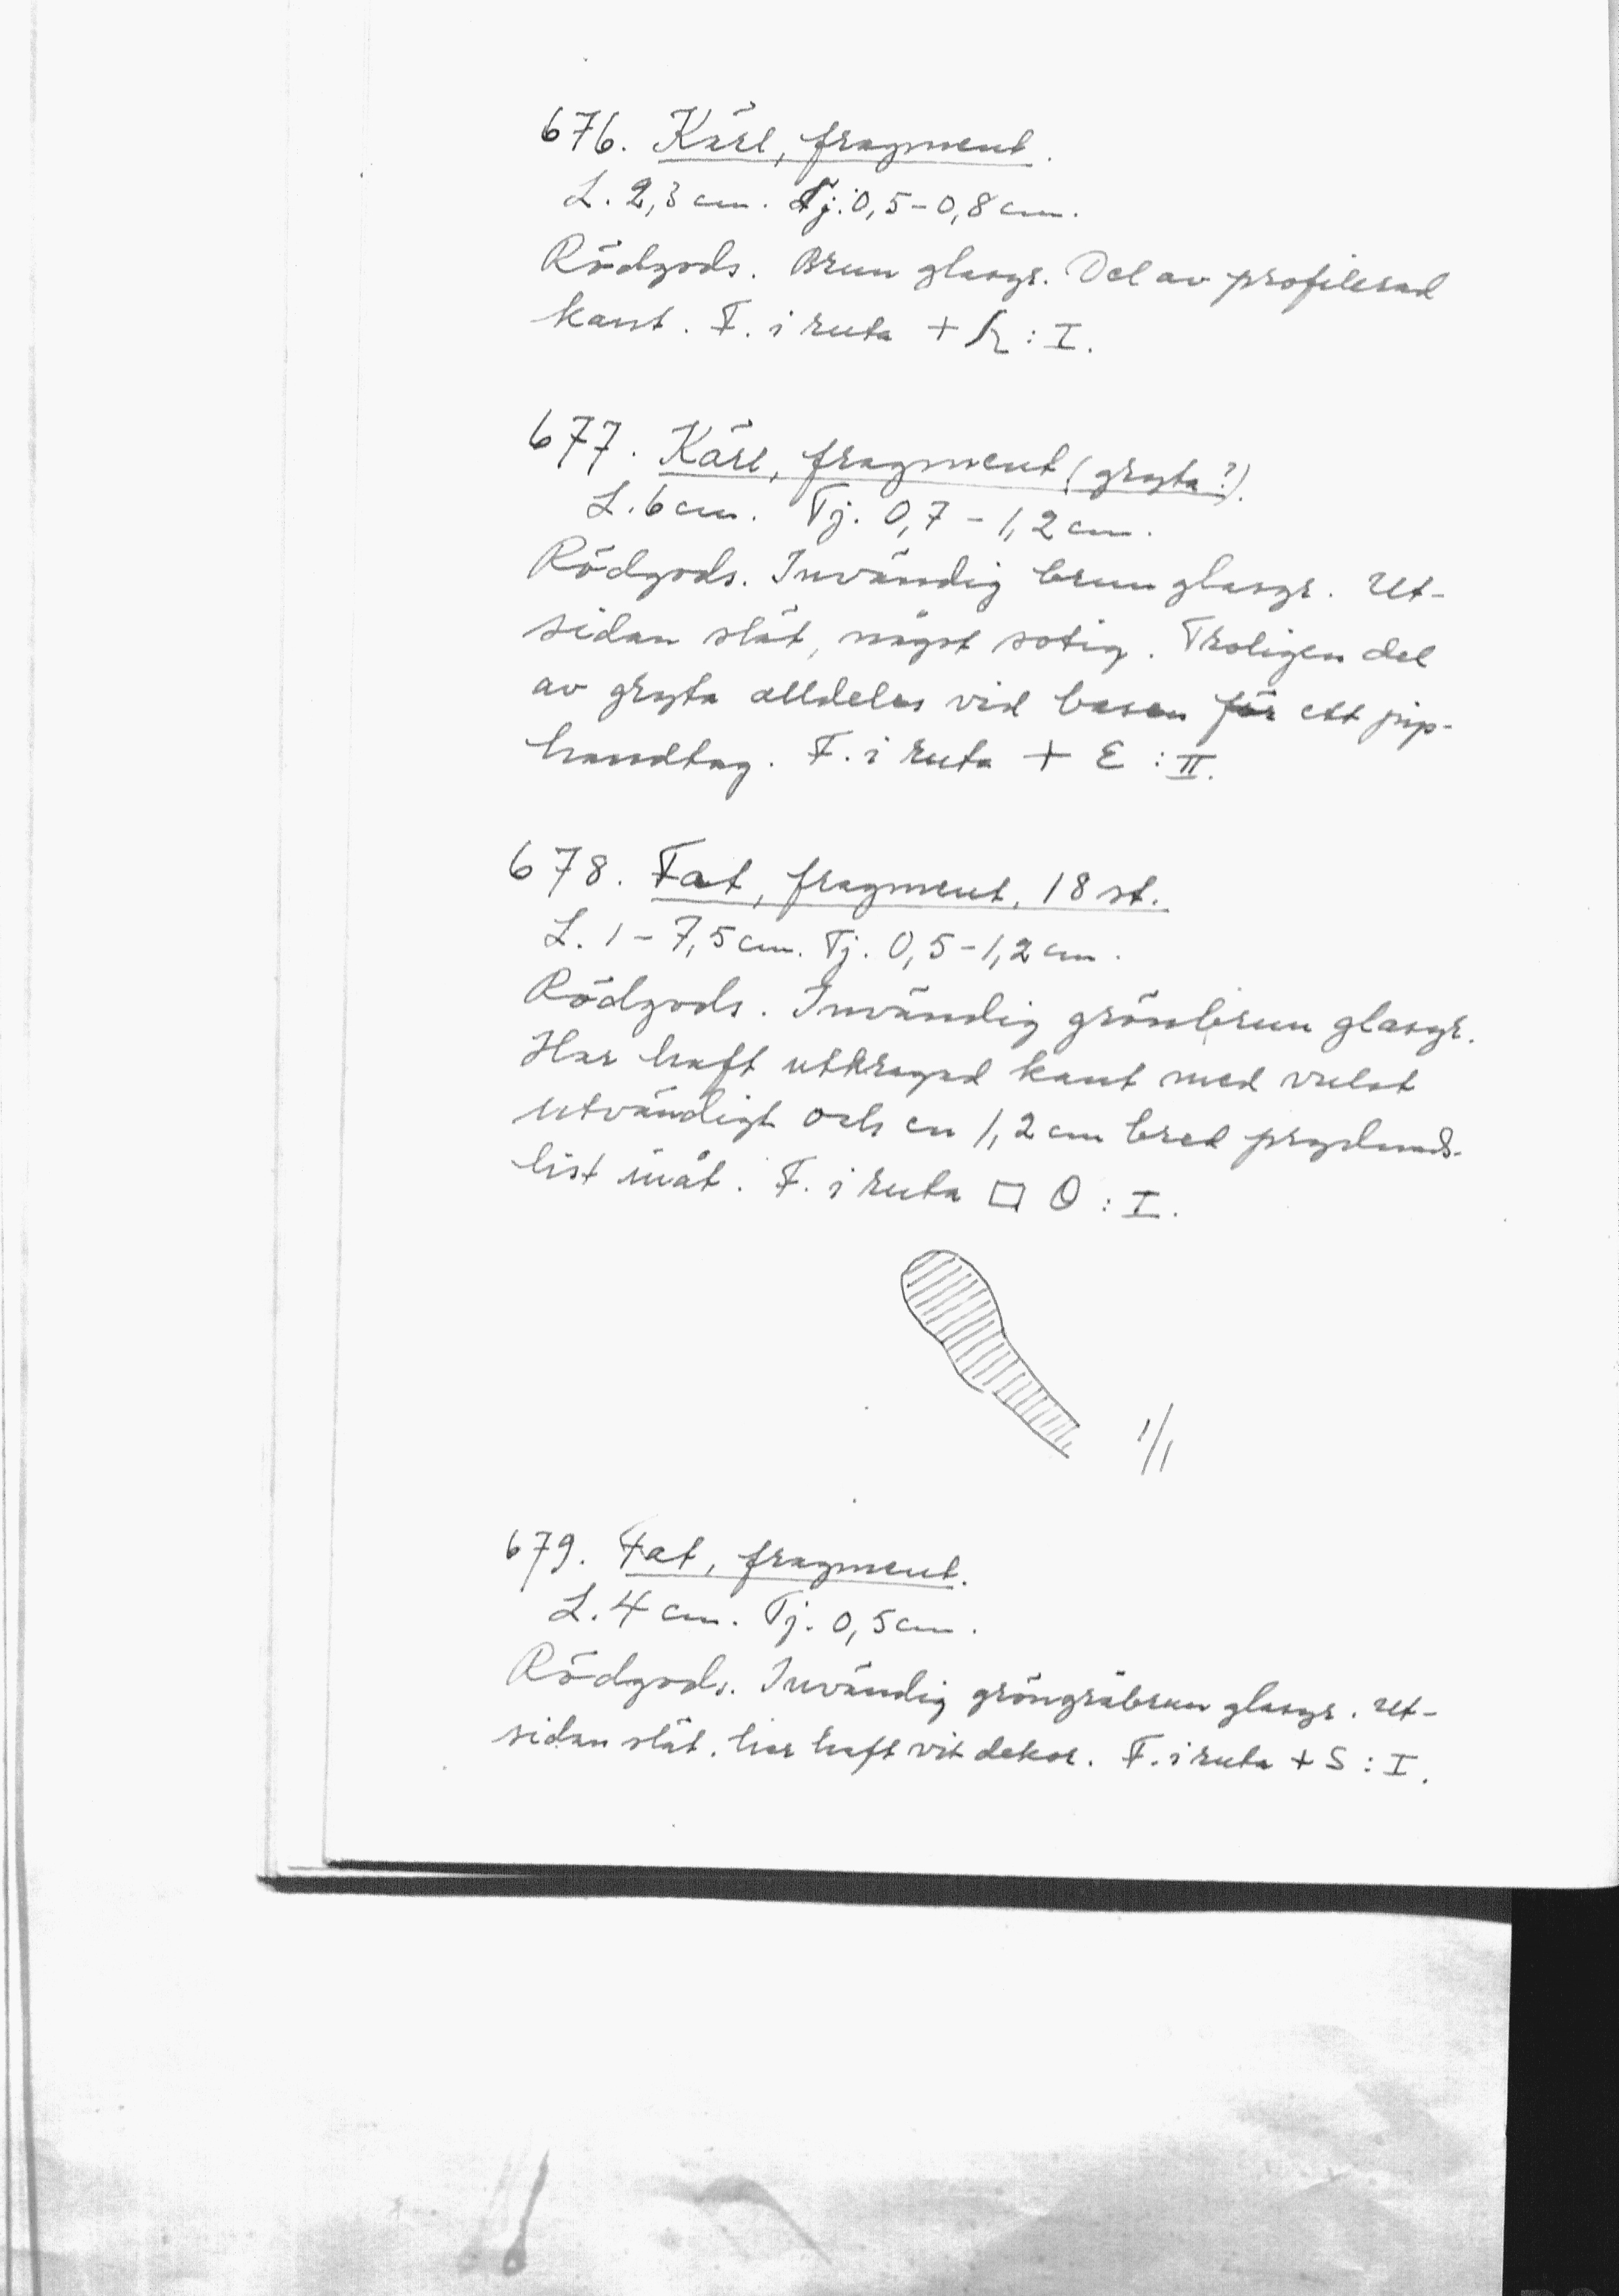 676. Kärl, fragment.
L. 2,3 cm. Tj. 0,5-0,8 cm.
Rödgods. Brun glasyr. Del av profilerad
kant. F. i ruta + R : I.
677. Kärl, fragment (gryta?).
L. 6 cm. Tj. 0,7 - 1,2 cm.
Rödgods. Invändig brun glasyr. Ut-
sidan slät, något sotig. Troligen del
av gryta alldeles vid basen för ett pip-
handtag. F. i ruta + E : II.
678. Fat, fragment, 18 st.
L. 1 - 7,5 cm. Tj. 0,5-1,2 cm.
Rödgods. Invändig grönbrun glasyr.
Har haft utkragad kant med vulst
utvändigt och en 1,2 cm bred prydnads-
list inåt. F. i ruta □ O : I.
1/1
679. Fat, fragment.
L. 4 cm. Tj. 0,5 cm.
Rödgods. Invändig gröngråbrun glasyr. Ut-
sidan slät. har haft vit dekor. F. i ruta + S : I.